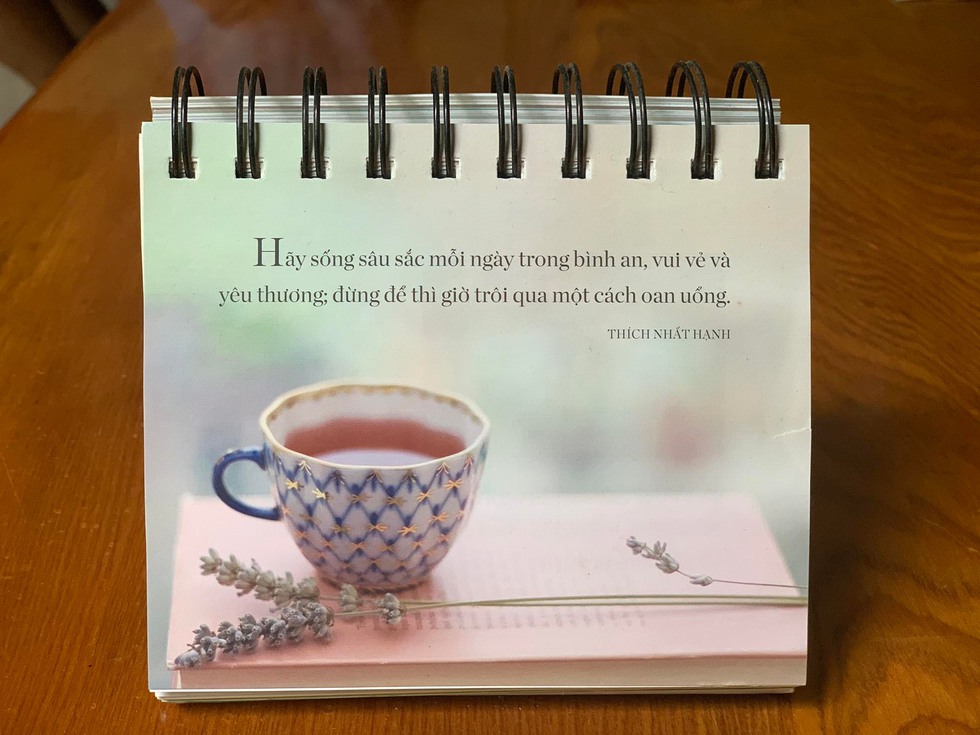 Hãy sống sâu sắc mỗi ngày trong bình an, vui vẻ và
yêu thương; đừng để thì giờ trôi qua một cách oan uổng.
THÍCH NHẤT HẠNH